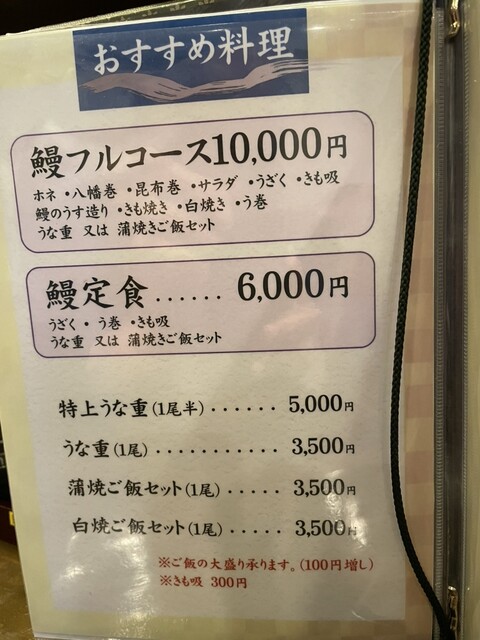 おすすめ料理
鰻フルコース10,000円
ホネ・八幡巻・昆布巻・サラダ・うざく・きも吸
鰻のうす造り・きも焼き・白焼き・う巻
うな重 又は 蒲焼きご飯セット
鰻定食......6,000円
うざく・う巻・きも吸
うな重 又は 蒲焼きご飯セット
特上うな重(1尾半)......5,000円
うな重(1尾)...........3,500円
蒲焼ご飯セット(1尾).....3,500円
白焼ご飯セット(1尾).....3,500円
※ご飯の大盛り承ります。(100円増し)
※きも吸 300円